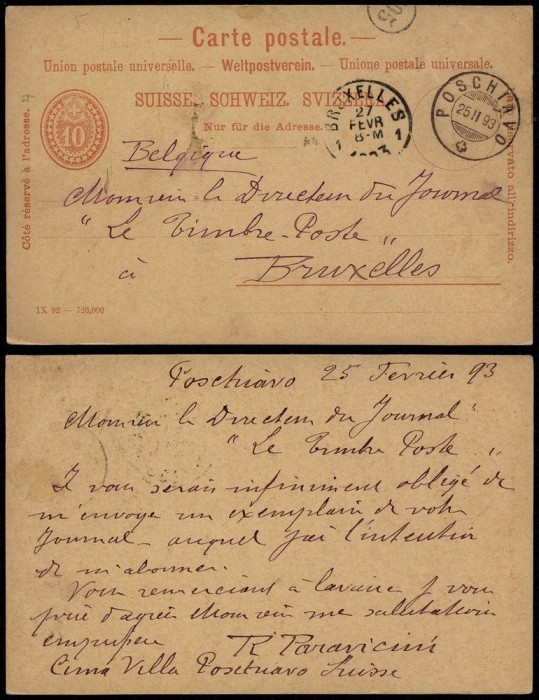 — Carte postale. —
Union postale universelle. — Weltpostverein. — Unione postale universale.
SUISSE. SCHWEIZ. SVIZZERA.
Nur für die Adresse.
Côté réservé à l'adresse.
riservato all'indirizzo.
10
BRUXELLES
1 27 1
FEVR
8-M
1893
POSCHIAVO
25 II 93
Belgique
Monsieur le Directeur du Journal
" Le Timbre-Poste "
à Bruxelles
IX 92 — 720,000
Poschiavo 25 Fevrier 93
Monsieur le Directeur du Journal
" Le Timbre Poste "
Je vous serais infiniment obligé de
m'envoye un exemplaire de votre
Journal auquel j'ai l'intention
de m'abonner.
Vous remerciant à l'avance je vous
prie d'agréer Monsieur me salutations
empressées
R Paravicini
Cima Villa Poschiavo Suisse